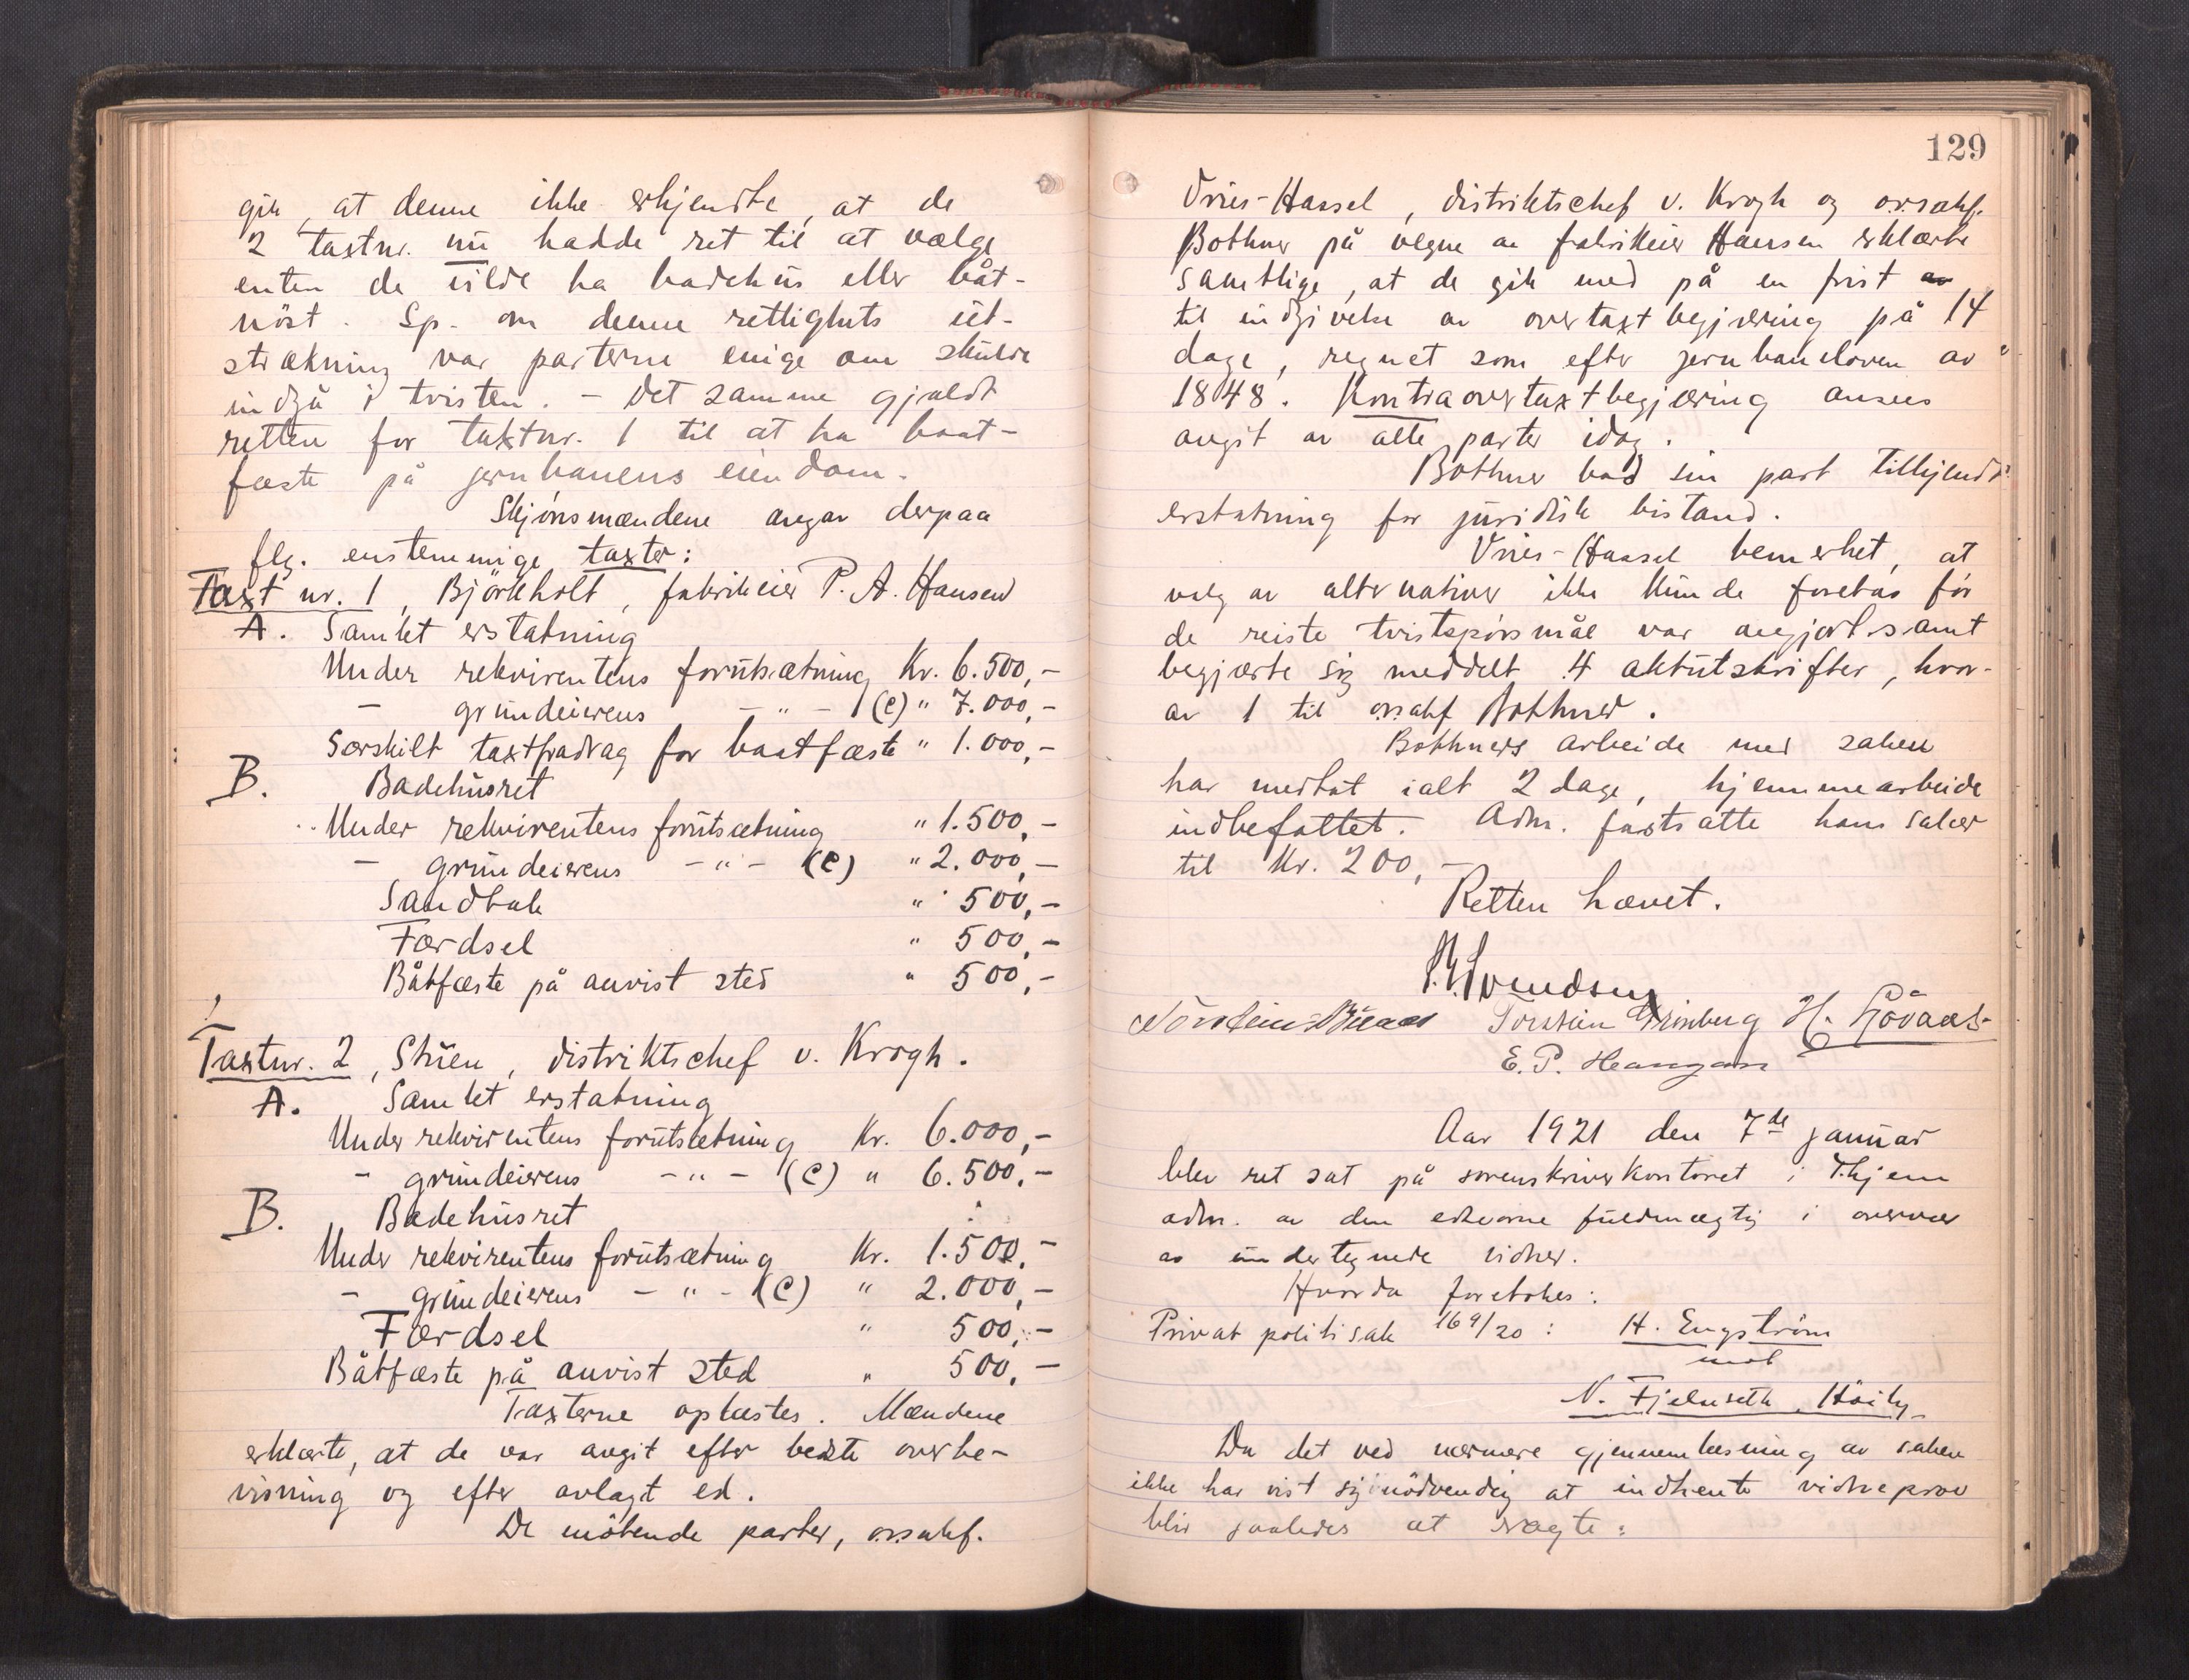 gik, at denne ikke erkjendte, at de
2 taxtnr. nu hadde ret til at vælge
enten de vilde ha badehus eller båt-
nöst. Sp. om denne rettigheds ut-
strækning var parterne enige om skulde
indgå i tvisten. - Det samme gjaldt
retten for taxtnr. 1 til at ha baat-
fæste på jernbanens eiendom.
Skjönsmændene avgav derpaa
flg. enstemmige taxter:
Taxt nr. 1, Björkholt, fabrikeier P. A. Hansen
A. Samlet erstatning
Under rekvirentens forutsætning Kr. 6.500,-
- grundeierens -"- (e) " 7.000,-
Særskilt taxtfradrag for baatfæste " 1.000,-
B. Badehusret
Under rekvirentens forutsætning " 1.500,-
- grundeierens -"- (e) " 2.000,-
Sandtak " 500,-
Færdsel " 500,-
Båtfæste på anvist sted " 500,-
Taxtnr. 2, Stuen, distriktschef v. Krogh.
A. Samlet erstatning
Under rekvirentens forutsætning Kr. 6.000,-
- grundeierens -"- (e) " 6.500,-
B. Badehusret
Under rekvirentens forutsætning Kr. 1.500,-
- grundeierens -"- (e) " 2.000,-
Færdsel " 500,-
Båtfæste på anvist sted " 500,-
Taxterne oplæstes. Mændene
erklærte, at de var avgit efter bedste overbe-
visning og efter avlagt ed.
De mötende parter, o.r.sakf.
129
Vries-Hassel, distriktschef v. Krogh og o.r.sakf.
Bothner på vegne av fabrikeier Hansen erklærte
samtlige, at de gik med på en frist av
til indgivelse av overtaxtbegjæring på 14
dage, regnet som efter jernbaneloven av
1848. Kontraovertaxtbegjæring ansees
avgit av alle parter idag.
Bothner bad sin part tilkjendt
erstatning for juridisk bistand.
Vries-Hassel bemerket, at
valg av alternativer ikke kunde foretas för
de reiste tvistspörsmål var avgjort samt
begjærte sig meddelt 4 aktutskrifter, hvor-
av 1 til o.r.sakf Bothner.
Bothners arbeide med saken
har medtat ialt 2 dage, hjemmearbeide
indbefattet. Adm. fastsatte hans salær
til Kr. 200,-
Retten hævet.
Svendsen
Torstein Grönberg H. Lövaas
E. P. Haugan
Aar 1921 den 7de januar
blev ret sat på sorenskriverkontoret i Thjem
adm. av den edsvorne fuldmægtig i overvær
av undertegnede vidner.
Hvorda foretokes:
Privat politisak 169/20: H. Engström
mot
N. Fjelnseth, Höiby
Da det ved nærmere gjennemlæsning av saken
ikke har vist sig nödvendig at indhente vidneprov
blir saaledes at vægte: